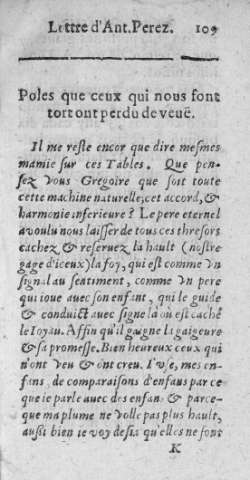 Lettre d'Ant. Perez. 109
Poles que ceux qui nous font
tort ont perdu de veuë.
Il me reste encor que dire mesmes
mamie sur ces Tables. Que pen-
sez vous Gregoire que soit toute
cette machine naturelle, cet accord, &
harmonie inferieure? Le pere eternel
a voulu nous laisser de tous ces thresors
cachez & reservez la hault (nostre
gage d'iceux) la foy, qui est comme vn
signal au sentiment, comme vn pere
qui ioue avec son enfant, qui le guide
& conduict avec signe là ou est caché
le Ioyau. Affin qu'il gaigne la gaigeure
& sa promesse. Bien heureux ceux qui
n'ont veu & ont creu. I'vse, mes en-
fans, de comparaisons d'enfans par ce
que ie parle avec des enfans & parce-
que ma plume ne volle pas plus hault,
aussi bien ie voy desia qu'elles ne font
K